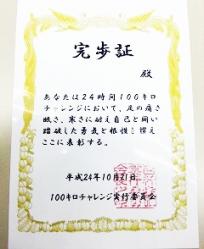 完歩証
殿
あなたは24時間100キロ
チャレンジにおいて、足の痛さ
眠さ、寒さに耐え自己と闘い
踏破した勇気と根性を讃え
ここに表彰する。
平成24年10月21日
100キロチャレンジ実行委員会